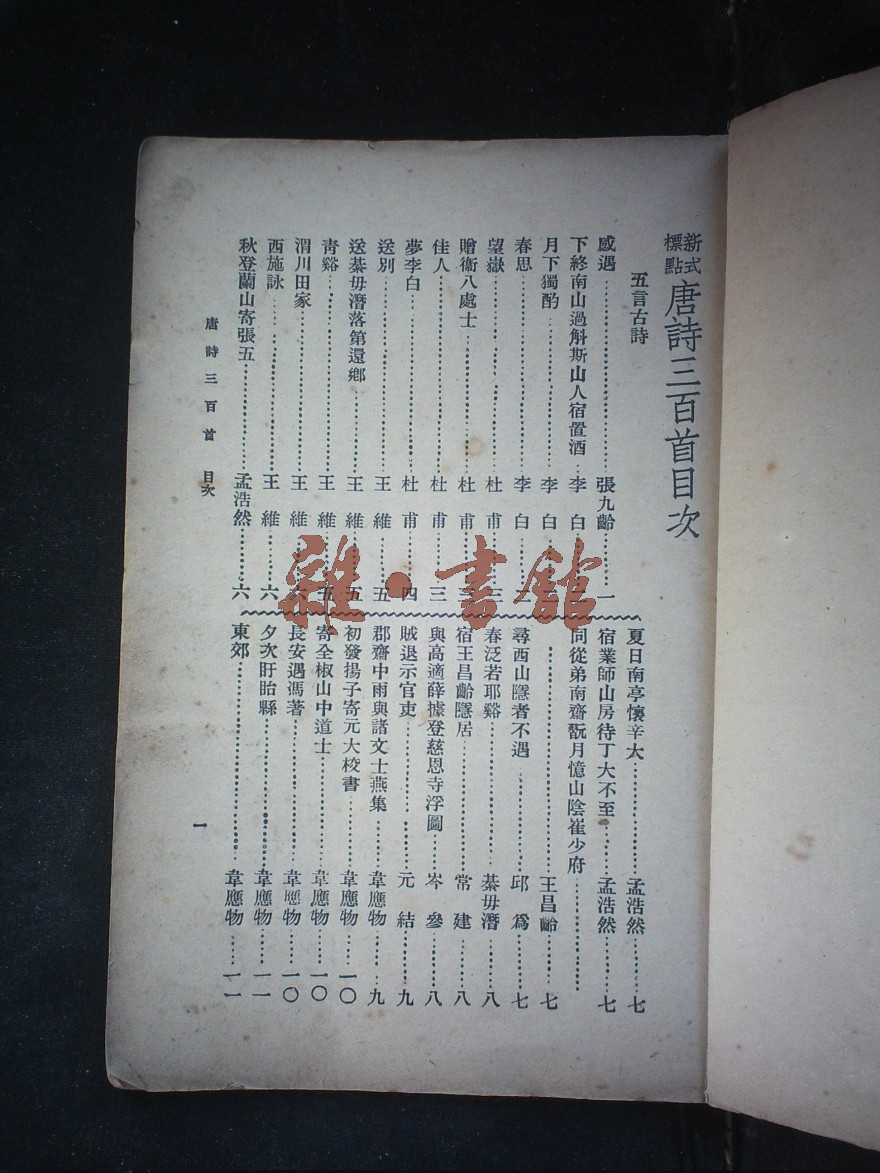 新式標點唐詩三百首目次
五言古詩
感遇……張九齡……一
下終南山過斛斯山人宿置酒…李白
月下獨酌……李白
春思……李白
望嶽……杜甫……三
贈衛八處士……杜甫
佳人……杜甫……三
夢李白……杜甫……四
送別……王維……五
送綦毋潛落第還鄉……王維……五
青谿……王維……五
渭川田家……王維……六
西施詠……王維……六
秋登蘭山寄張五……孟浩然……六
夏日南亭懷辛大……孟浩然……七
宿業師山房待丁大不至……孟浩然……七
同從弟南齋翫月憶山陰崔少府……
……王昌齡……七
尋西山隱者不遇……邱為……七
春泛若耶谿……綦毋潛……八
宿王昌齡隱居……常建……八
與高適薛據登慈恩寺浮圖……岑參……八
賊退示官吏……元結……九
郡齋中雨與諸文士燕集……韋應物……九
初發揚子寄元大校書……韋應物……一〇
寄全椒山中道士……韋應物……一〇
長安遇馮著……韋應物……一〇
夕次盱眙縣……韋應物……一一
東郊……韋應物……一一
唐詩三百首 目次
一
雜·書館